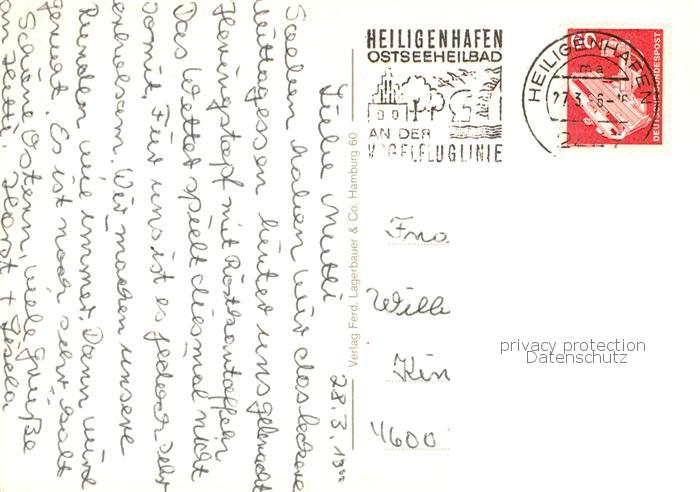 28.3.
Liebe Mutti
Soeben haben wir das leckere
Mittagessen hinter uns gebracht
Heringstopf mit Röstkartoffeln
Das Wetter spielt diesmal nicht
so mit. Für uns ist es jedoch sehr
erholsam. Wir machen unsere
Runden wie immer. Dann wird
geruht. Es ist noch sehr kalt
Schöne Ostern, viele Grüße
an Mutti. Horst + Gisela
Verlag Ferd. Lagerbauer & Co. Hamburg 60
HEILIGENHAFEN
OSTSEEHEILBAD
AN DER
VOGELFLUGLINIE
HEILIGENHAFEN
ma
27.3.
60
DEUTSCHE BUNDESPOST
Frau
Will
Kin
4600
privacy protection
Datenschutz